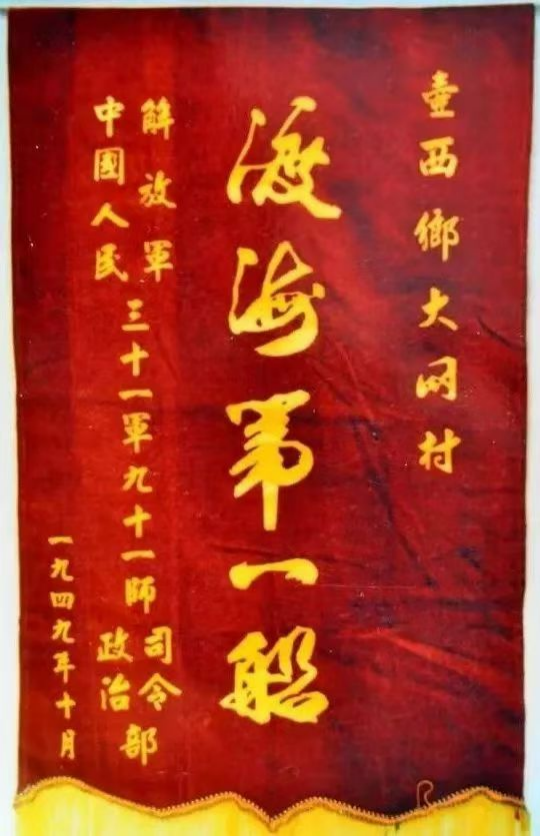 壷西鄉大网村
渡海第一船
中國人民解放軍三十一軍九十一師司令部政治部
一九四九年十月